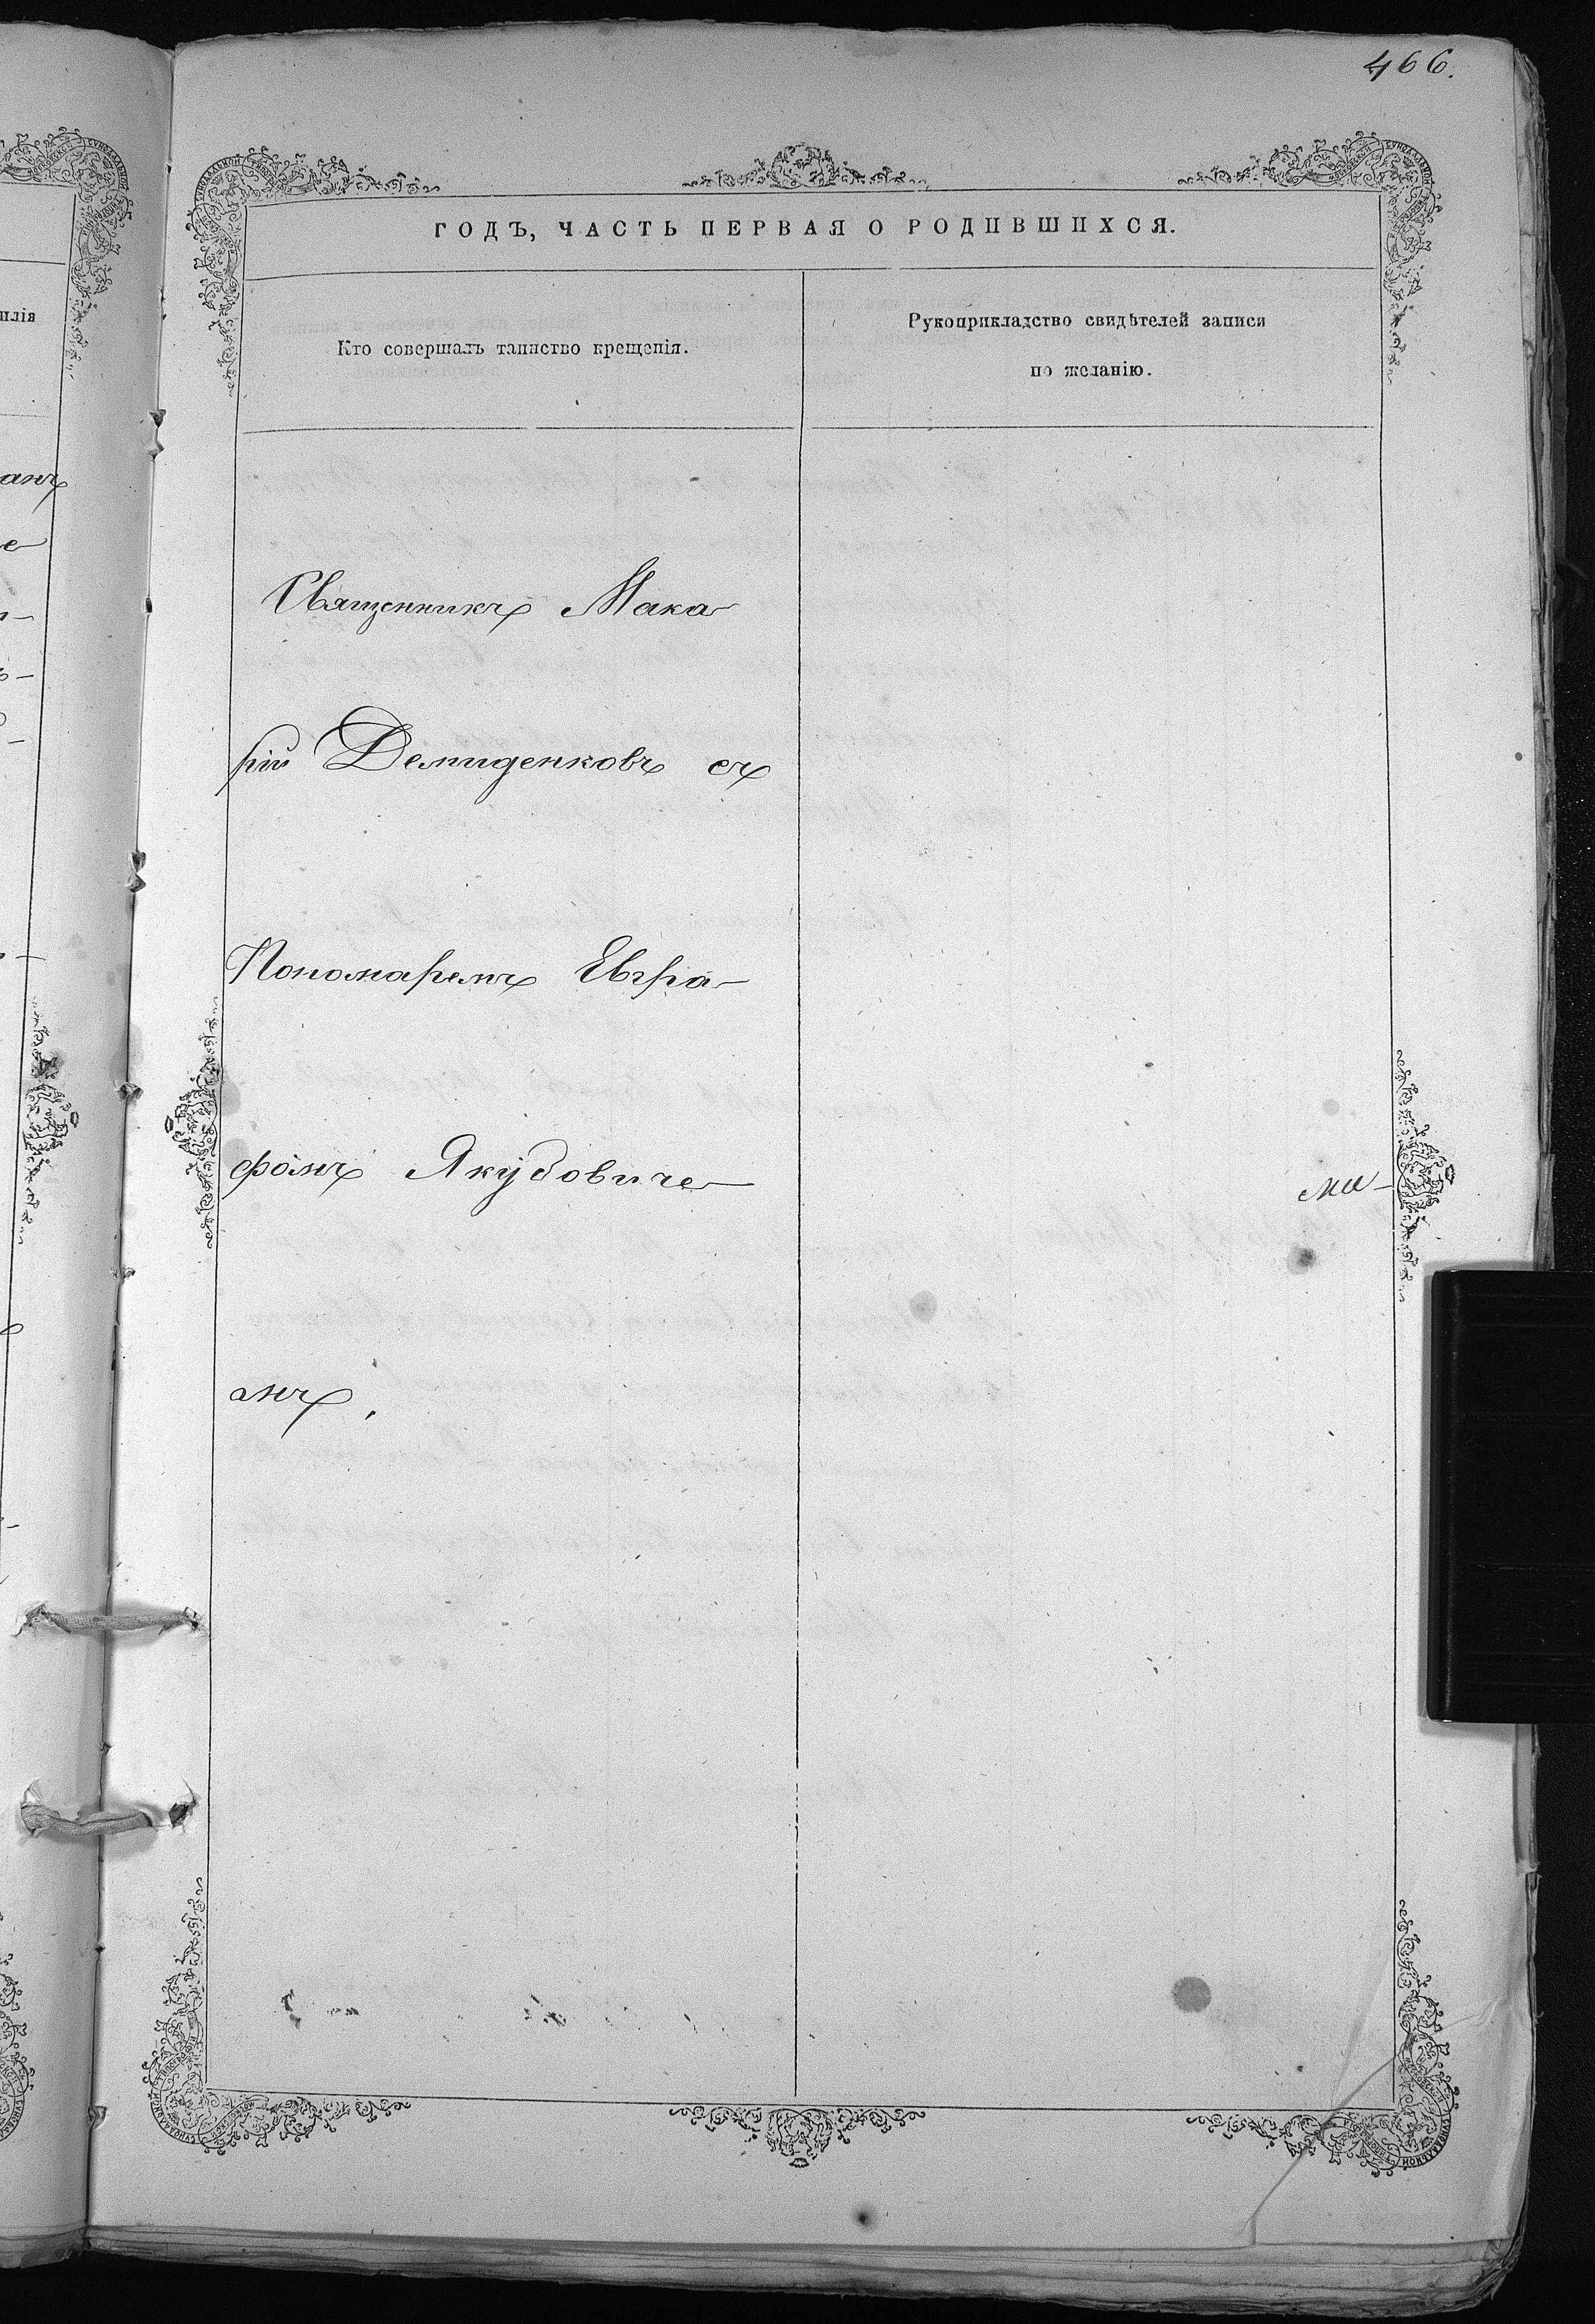 466.
ГОДЪ, ЧАСТЬ ПЕРВАЯ О РОДИВШИХСЯ.
илія
Кто совершалъ таинство крещенія.
Рукоприкладство свидѣтелей записи
по желанію.
Священникъ Мака
рій Демиденковъ съ
Пономаремъ Евгра-
фомъ Якубовиче-
ми-
амъ.